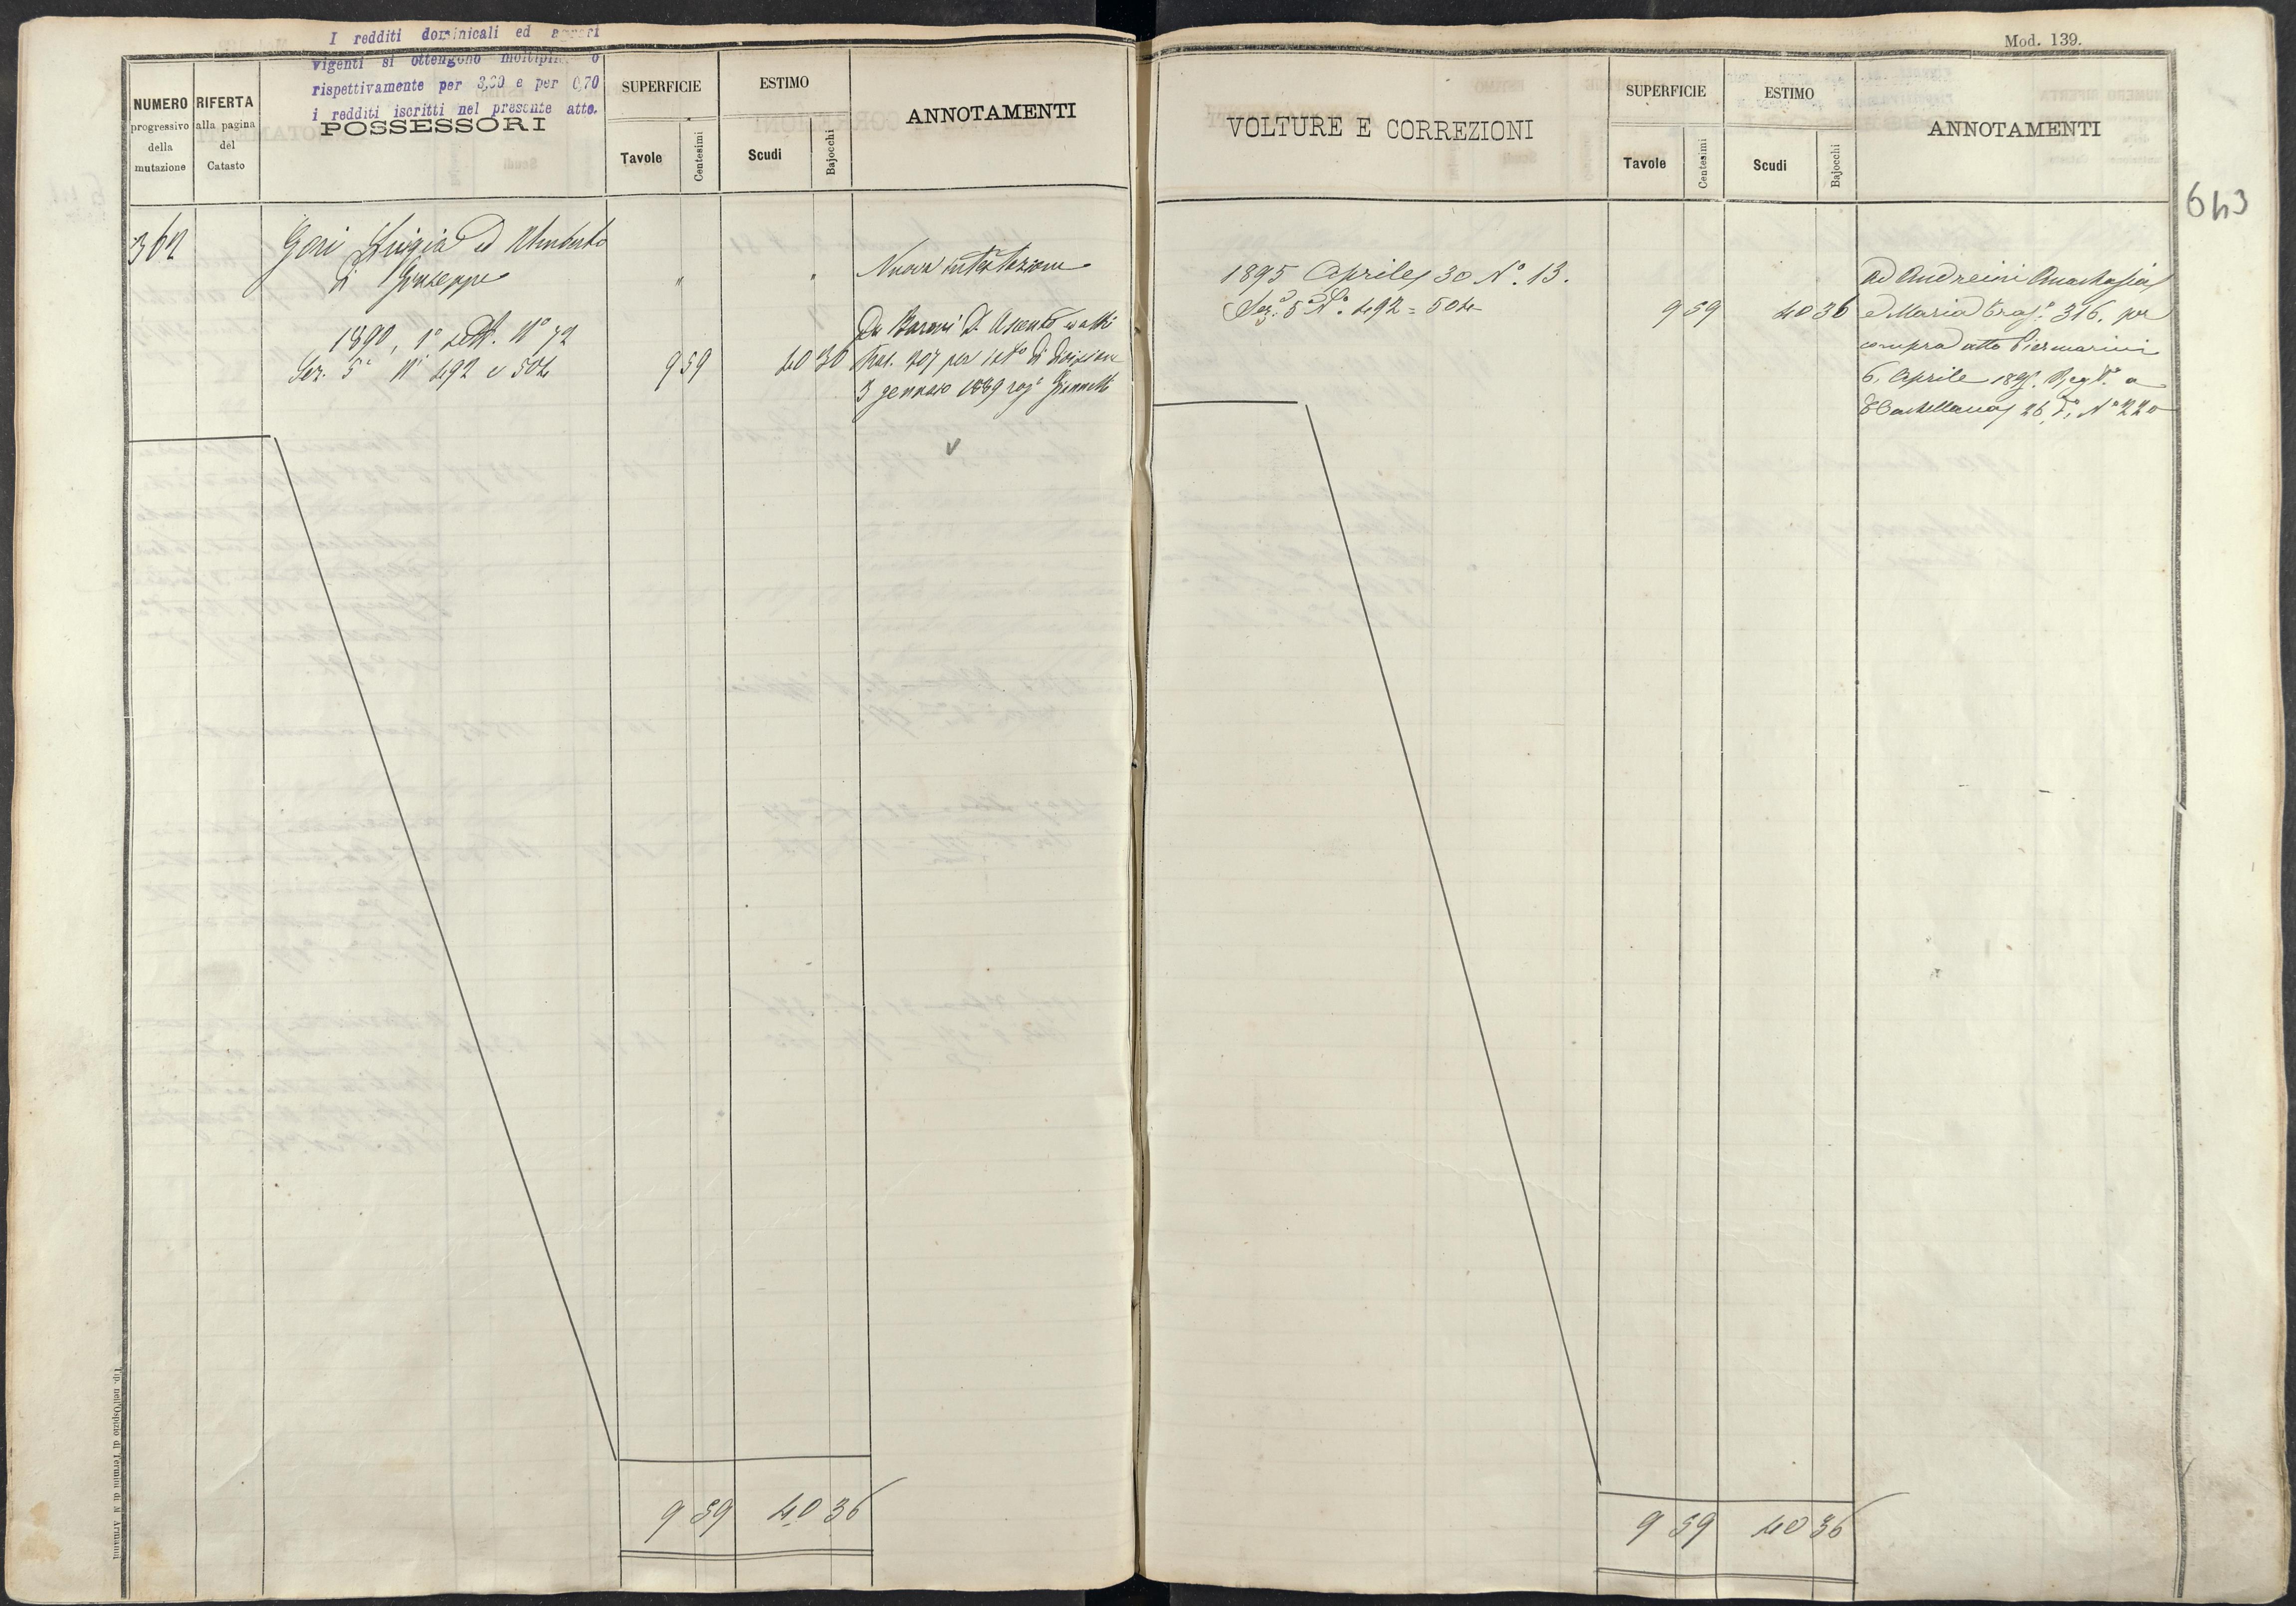 I redditi dominicali ed agrari
vigenti si ottengono
rispettivamente per 3,60 e per 0,70
i redditi iscritti nel presente atto.
NUMERO
progressivo
della
mutazione
RIFERTA
alla pagina
del
Catasto
POSSESSORI
SUPERFICIE
Tavole
Centesimi
ESTIMO
Scudi
Bajocchi
ANNOTAMENTI
362
Gori Luigia ed Umberto
di Giuseppe
" "
Nuova intestazione
1890, 1° sett. N° 72
Sez. 5ª Nⁱ 492 e 504
9 59
40 36
Da Baroni D. Assento ed altri
Tras. 207 per atto di divisione
3 gennaio 1889 rog° Giannetti
v
9 59 40 36
Tip. nell'Ospizio di Termini di
Mod. 139.
VOLTURE E CORREZIONI
SUPERFICIE
Tavole
Centesimi
ESTIMO
Scudi
Bajocchi
ANNOTAMENTI
643
1895 Aprile 30 N°. 13.
Sezᵉ 5ª Nⁱ. 492 = 504
9 59
40 36
ad Andreini Anastasia
e Maria Trasᵗᵒ 316. per
compra atto Piermarini
6. Aprile 1895. Regᵗᵒ a
CCastellana 26 dᵒ, N° 220
9 59 40 36